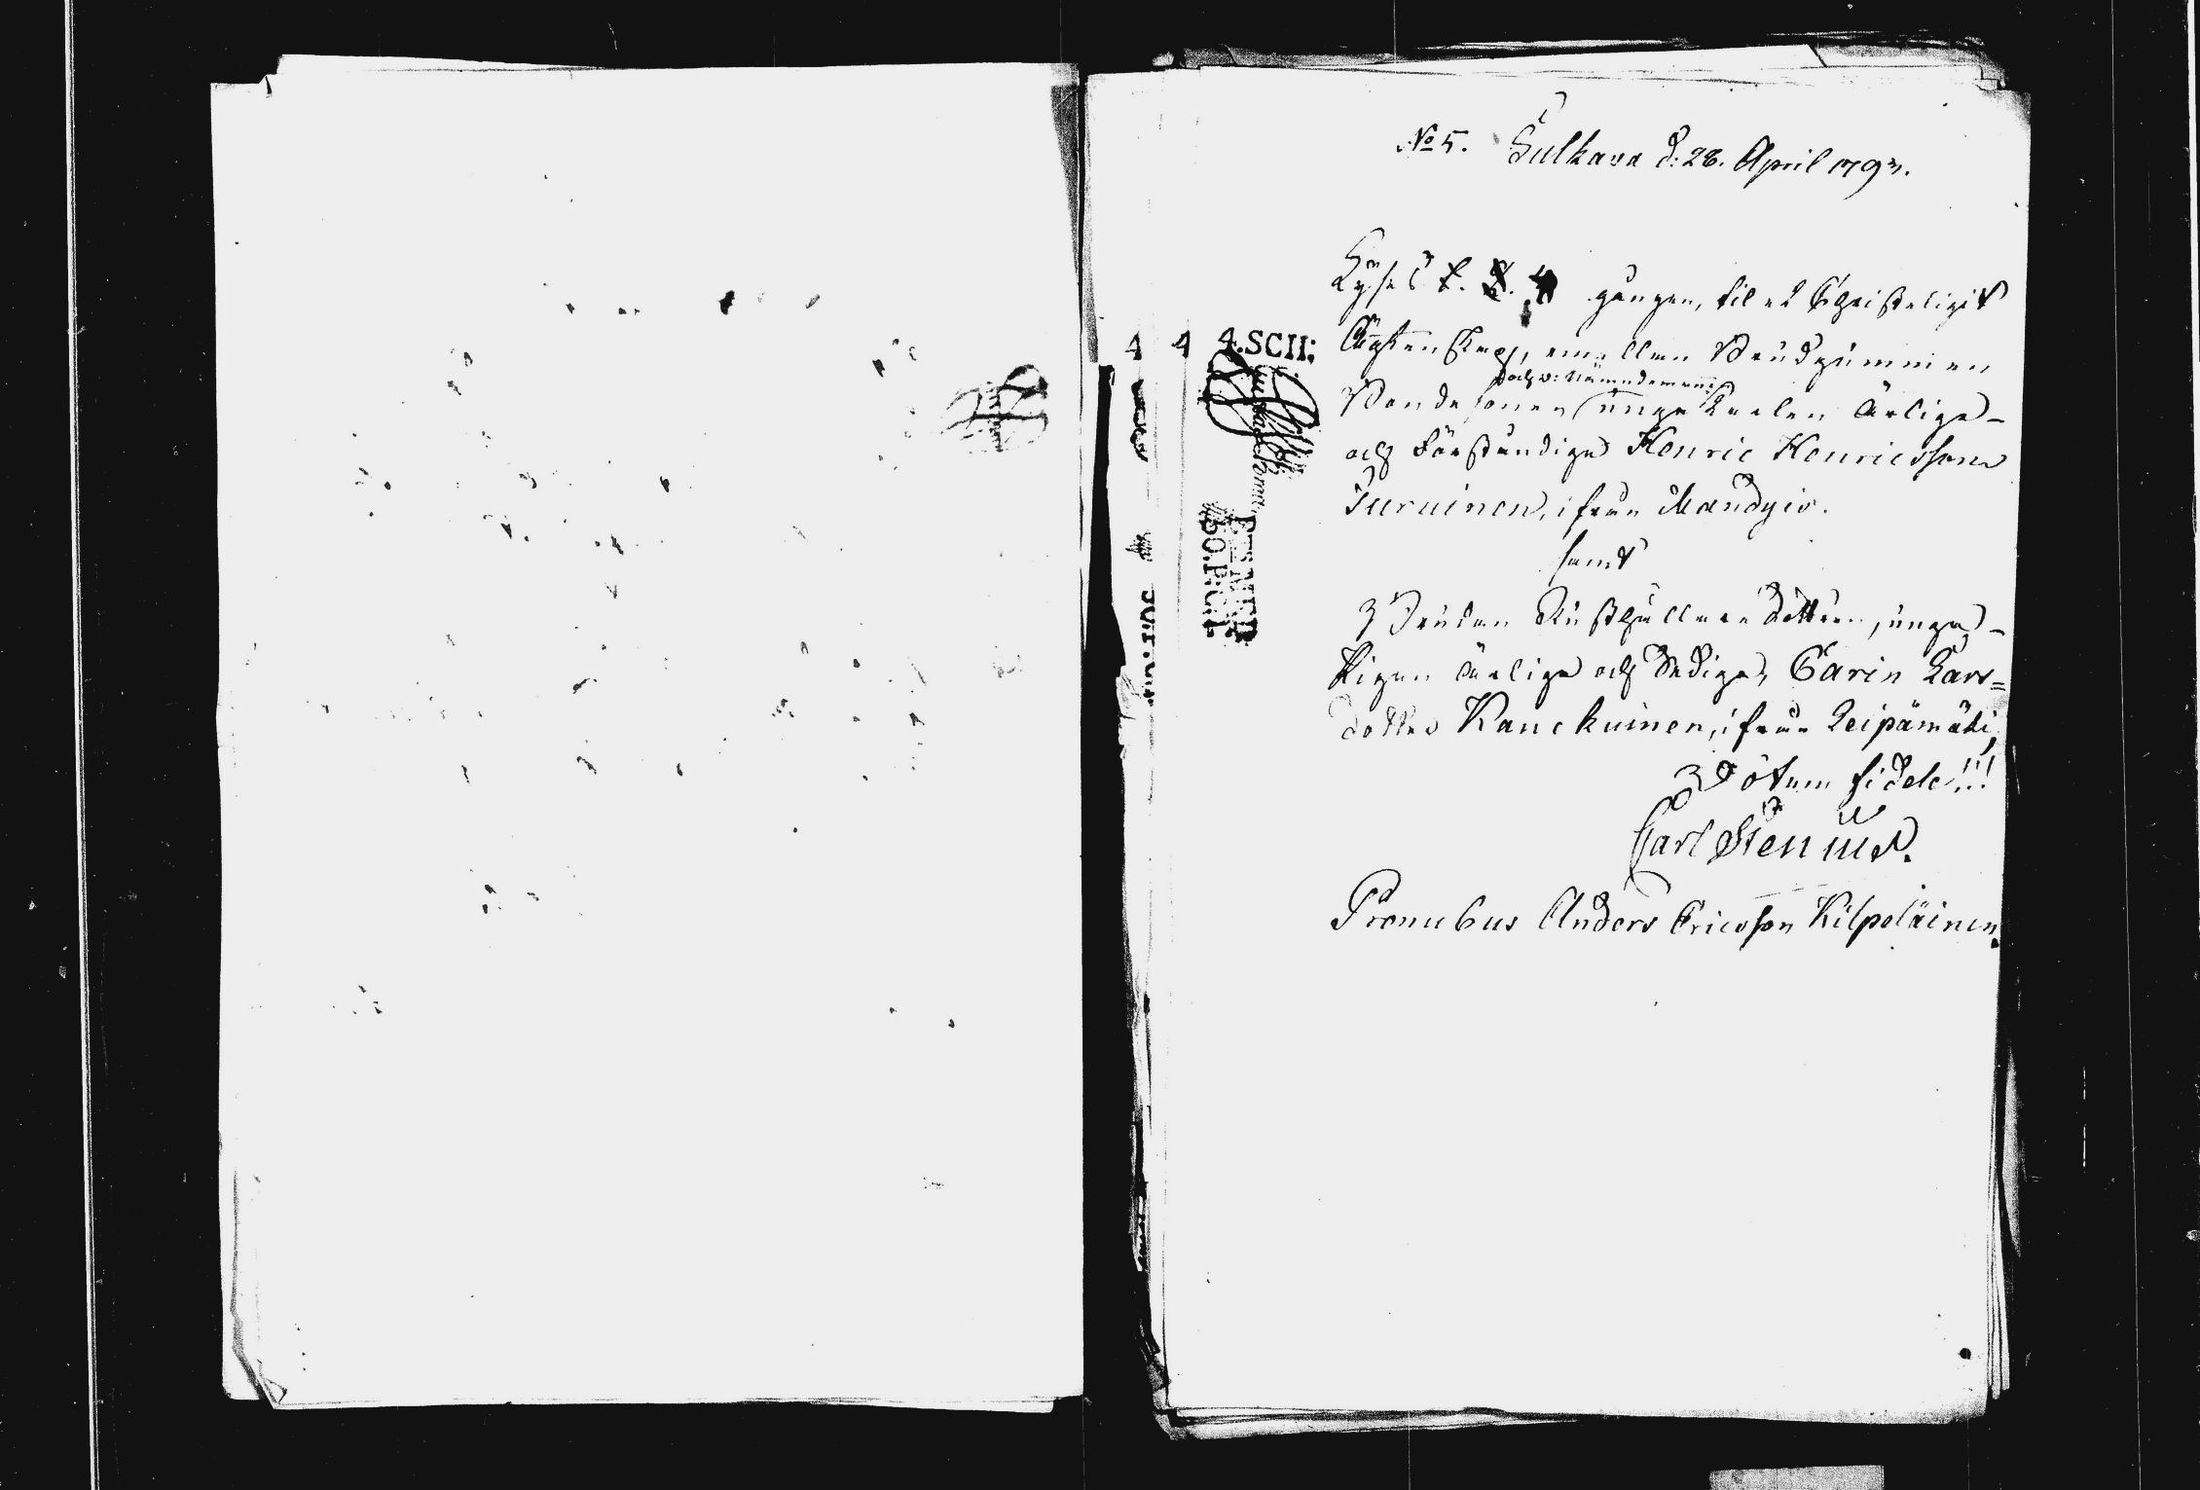 No 5. Sulkava d. 28. April 1793.
Lyses gången, til et Christeligit
Ächtenskap, emellan Brudgummen
och v: Nämndemans
Bonde sonen unge Karlen Ärlige
och Förståndige Henric Henricsson
Turuinen, ifrån Mandyis.
samt
Bruden Rusthållare dottren, unga
Pigan Ärliga och Sediga, Carin Lars=
dotter Kanckuinen, ifrån Leipämäki,
Votum fidele!!!
Carl Stenius.
Pronubus Anders Ericsson Kilpeläinen.
4 4 4.SCII;